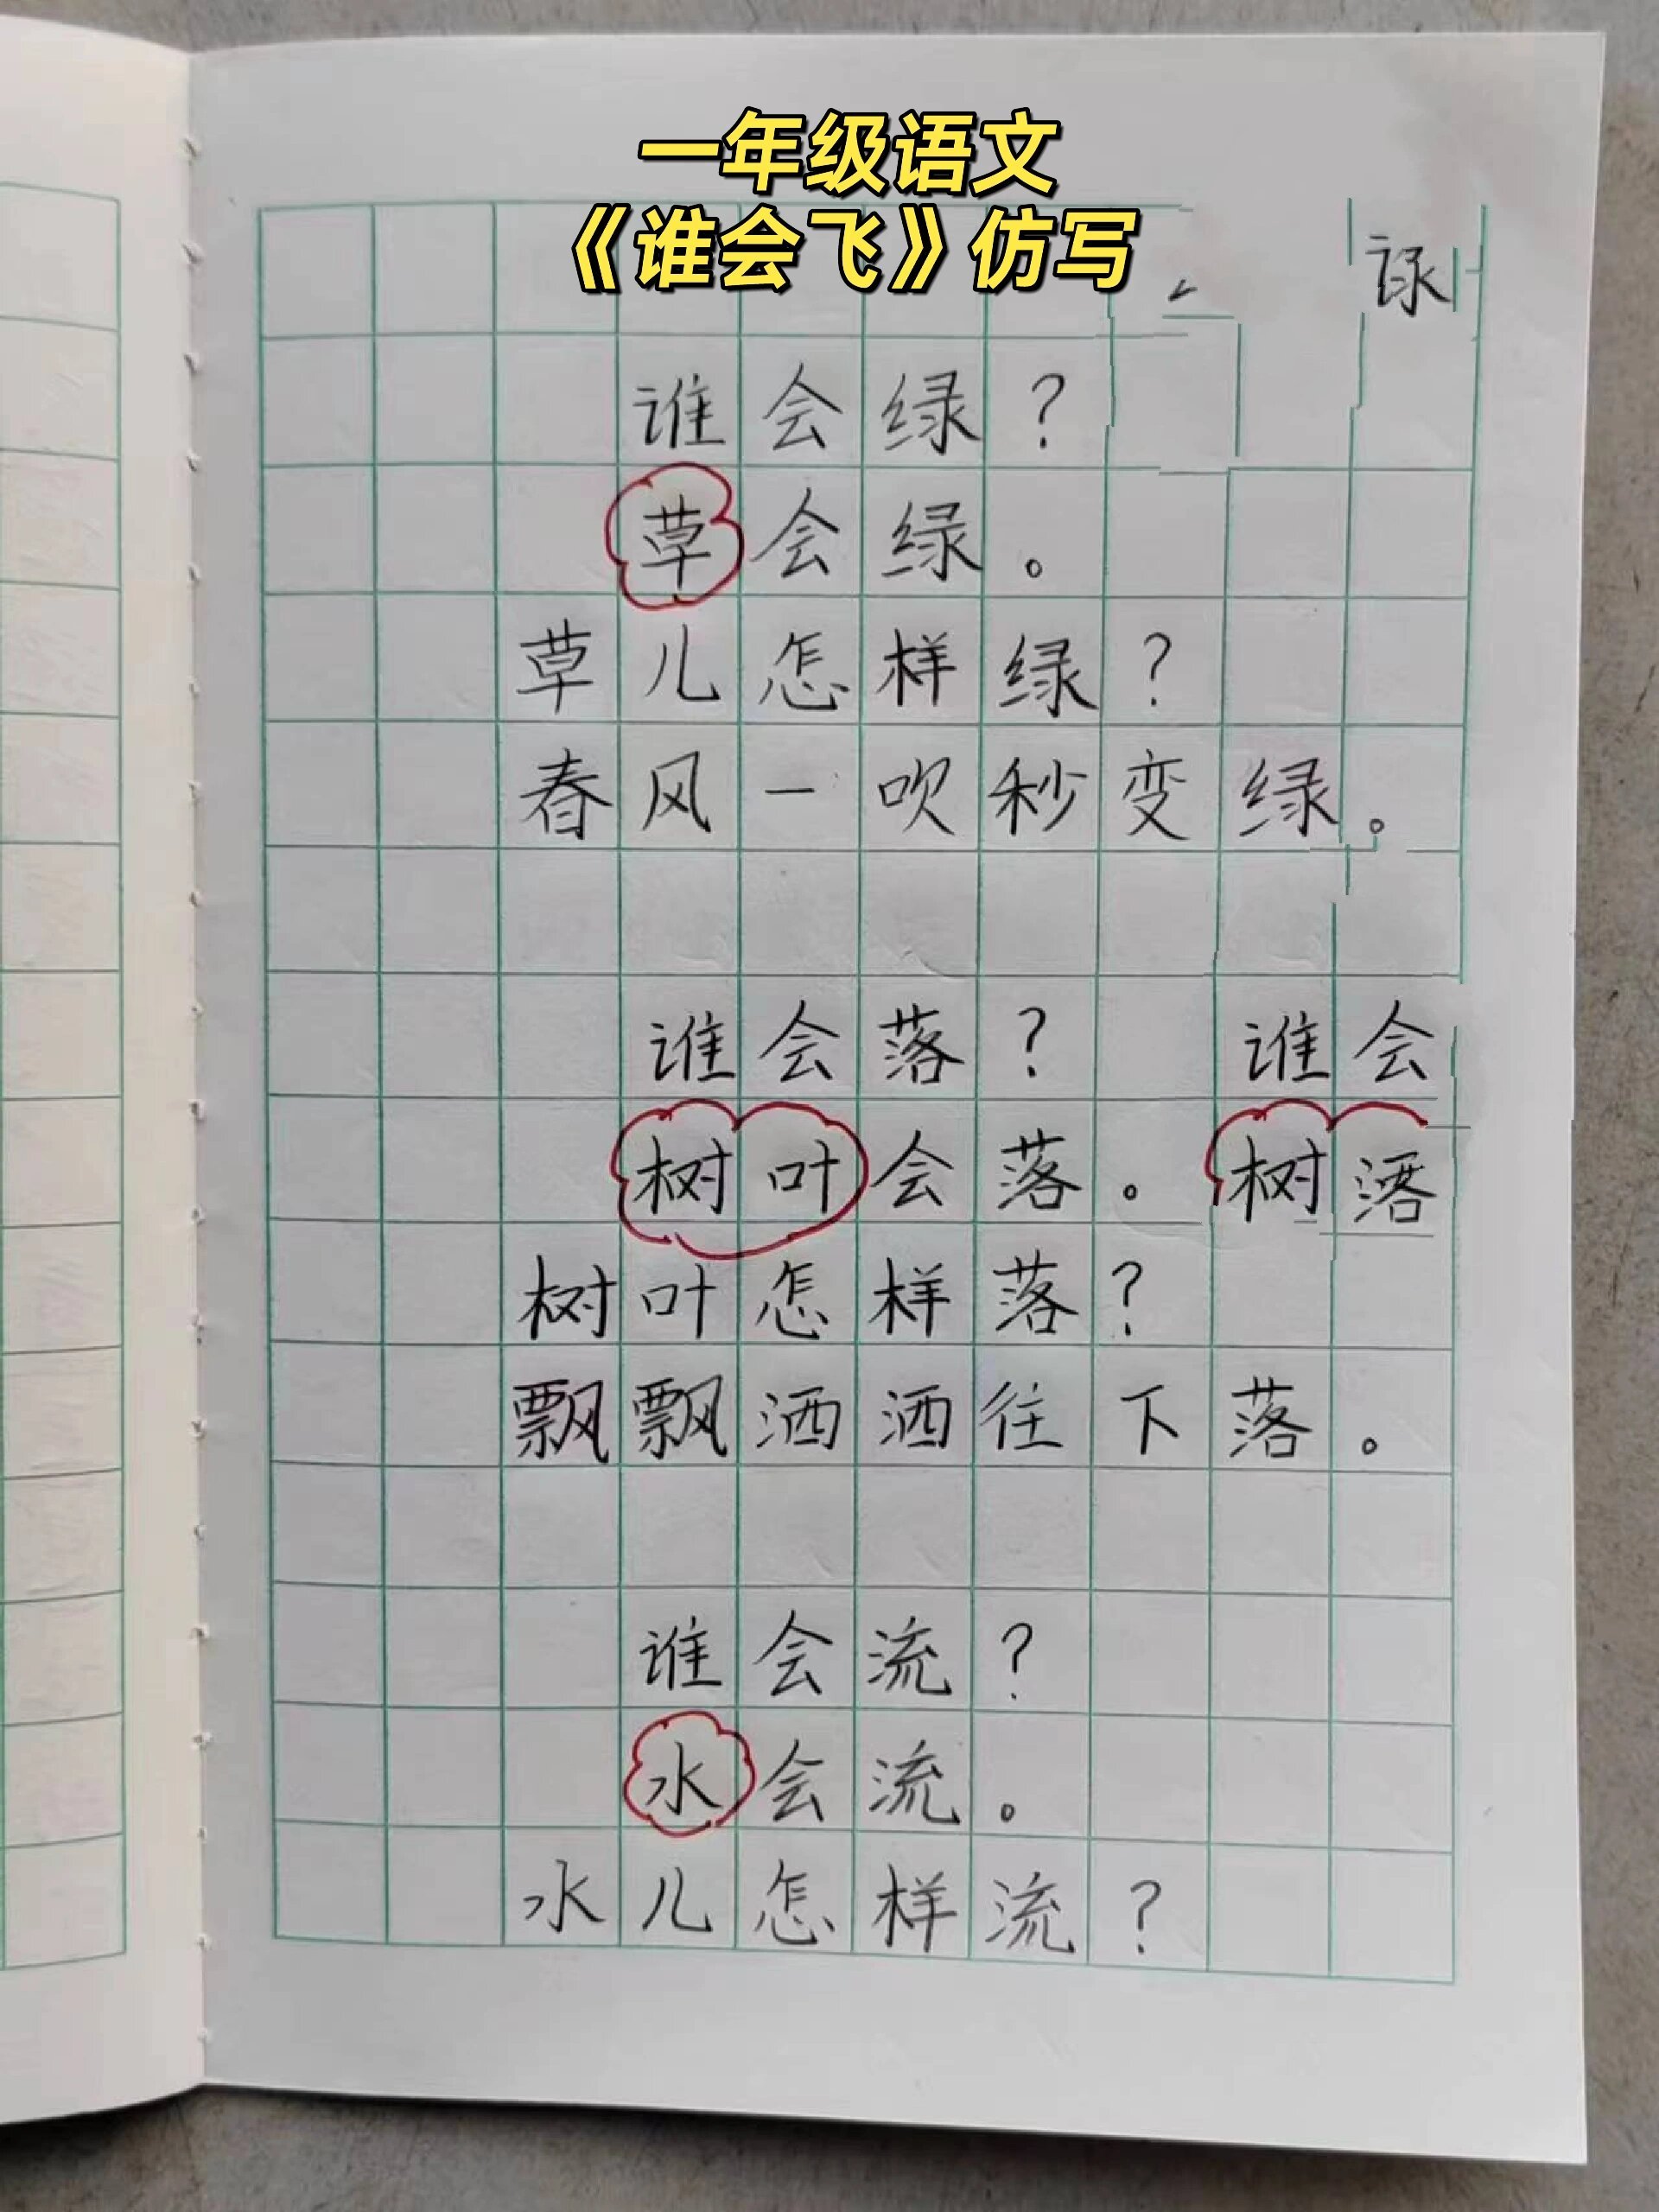 一年级语文
《谁会飞》仿写
谁会绿？
草会绿。
草儿怎样绿？
春风一吹秒变绿。
谁会落？ 谁会
树叶会落。 树
树叶怎样落？
飘飘洒洒往下落。
谁会流？
水会流。
水儿怎样流？